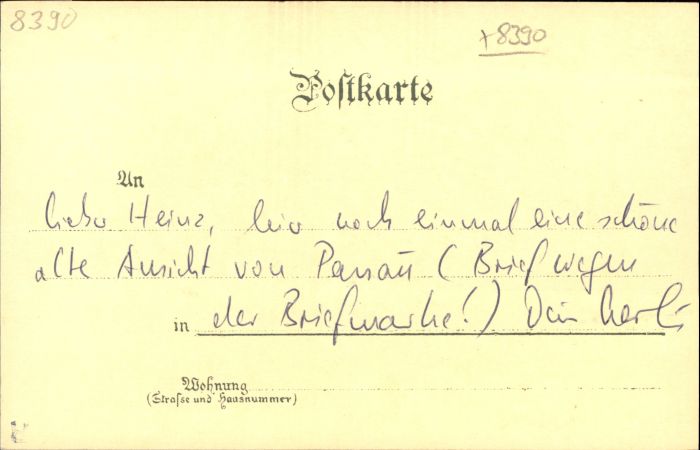 8390
+8390
Postkarte
An
lieber Heinz, hier noch einmal eine schöne
alte Ansicht von Passau (Brief wegen
in der Briefmarke!) Dein
Wohnung
(Strasse und Hausnummer)